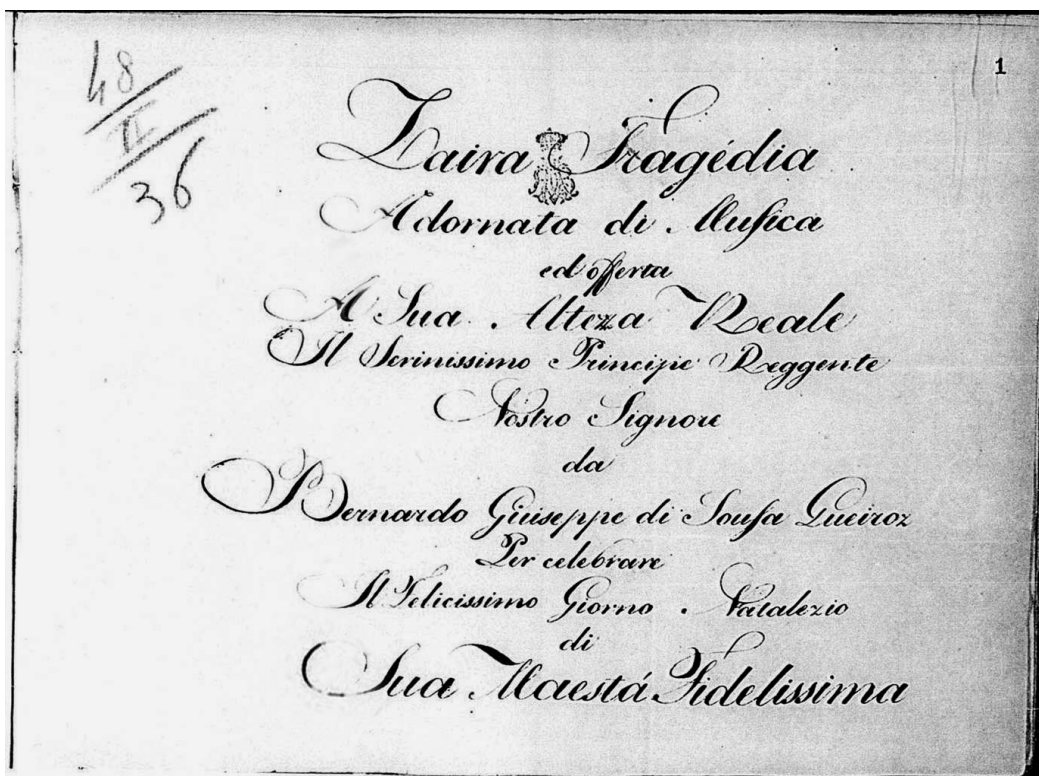 1
48
II
36
Zaira Tragédia
Adornata di Musica
ed offerta
A Sua Alteza Reale
Il Serinissimo Principe Reggente
Nostro Signore
da
Bernardo Giuseppe di Sousa Queiroz
Per celebrare
Il Felicissimo Giorno Natalezio
di
Sua Maestá Fidelissima